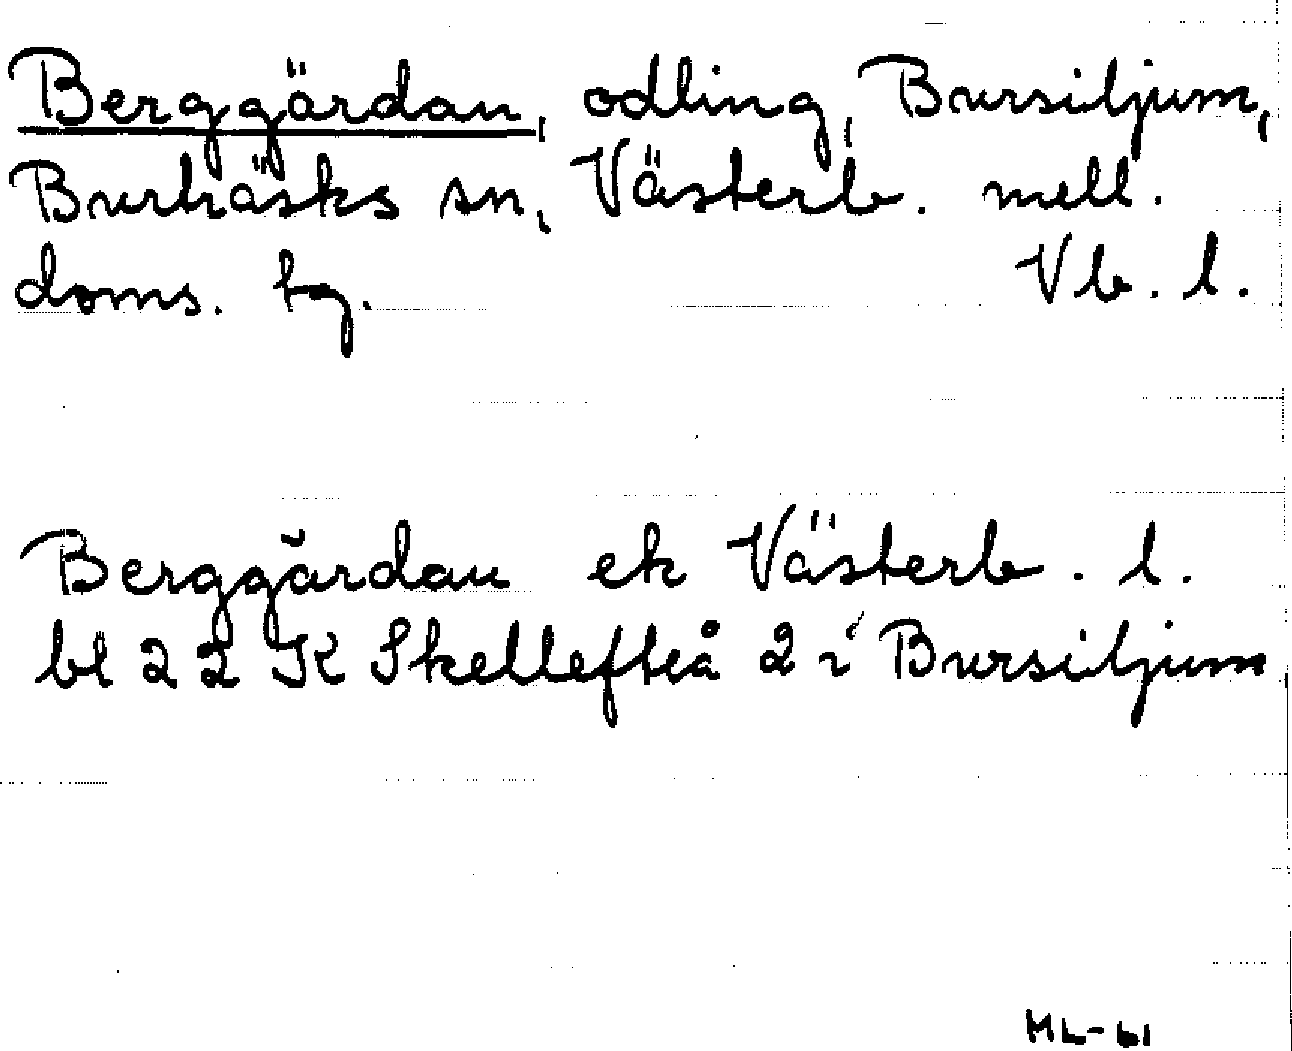 Berggärdan, odling, Bursiljum,
Burträsks sn, Västerb. mell.
doms. tg. Vb. l.
Berggärdan ek Västerb. l.
bl 22 K Skellefteå 2 i Bursiljum
ML-61